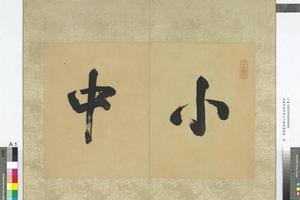 小
中
A1